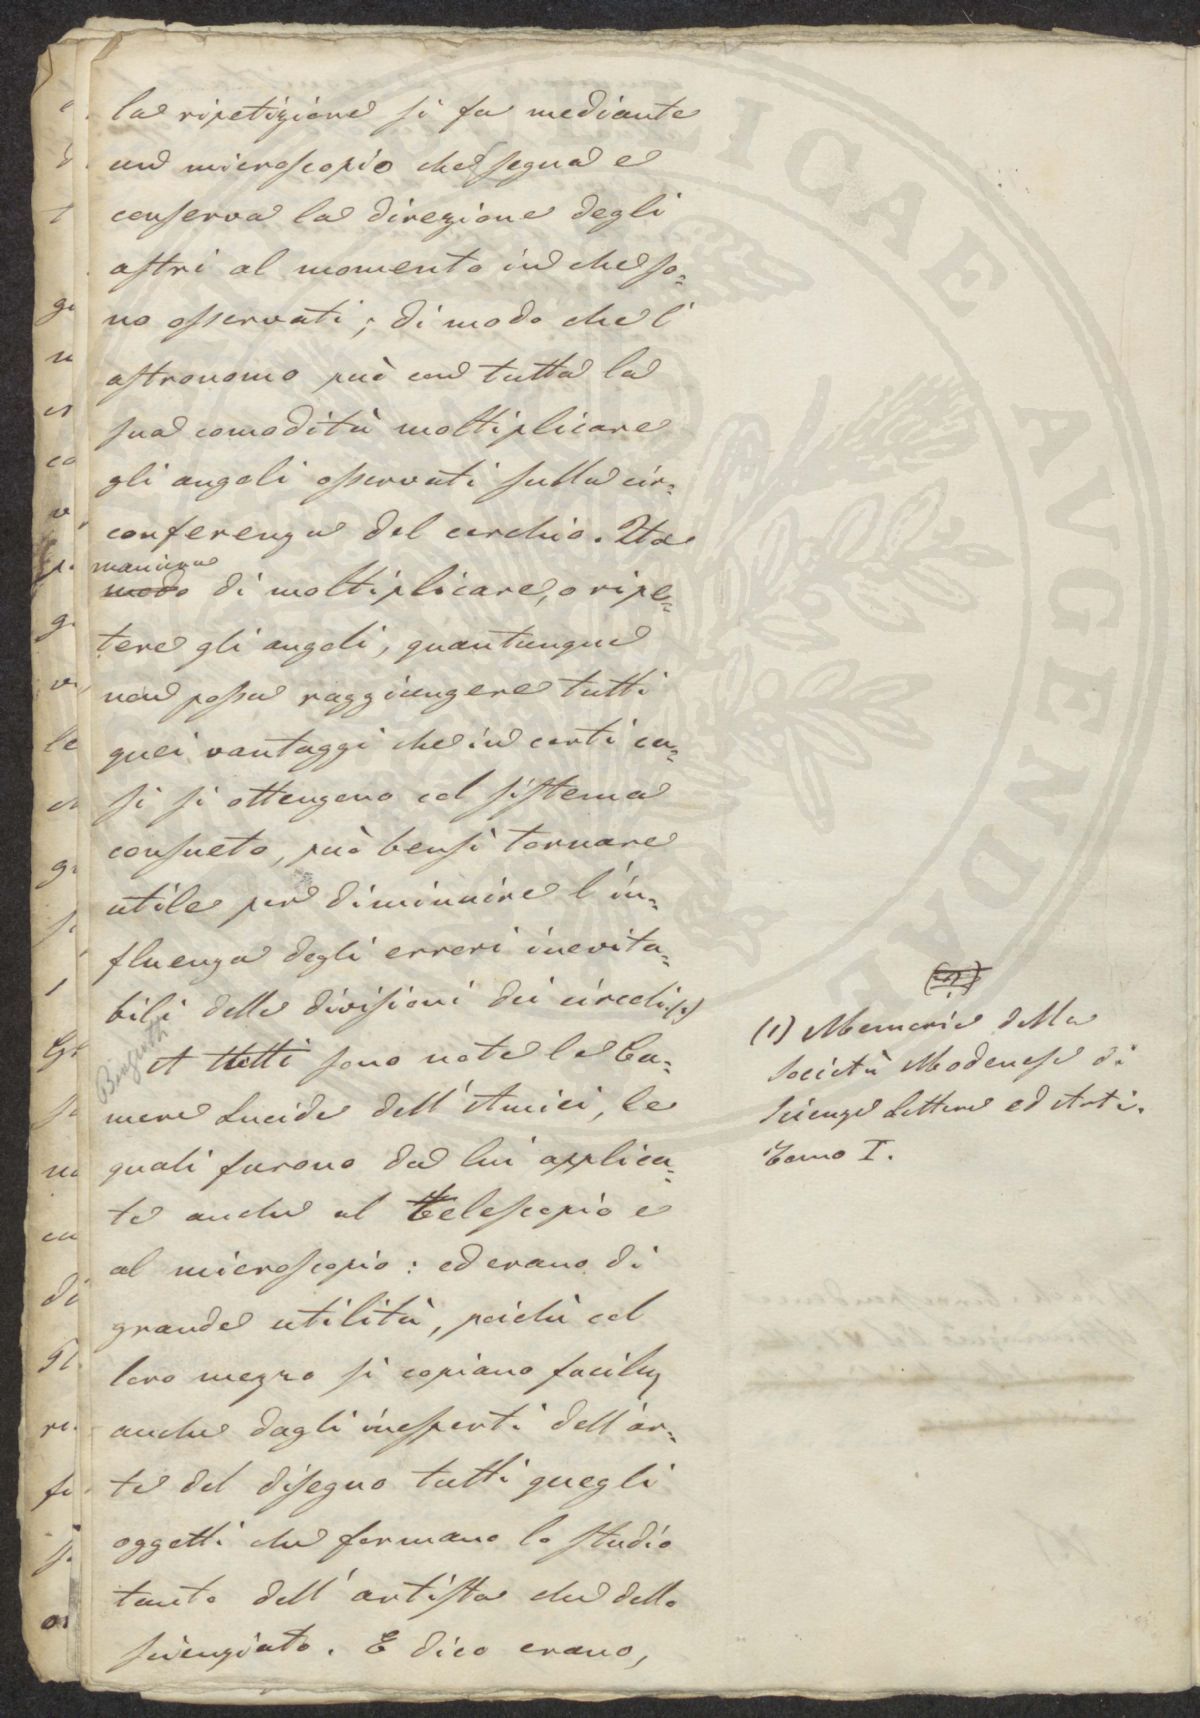 la ripetizione si fa mediante
un microscopio che segna e
conserva la direzione degli
astri al momento in che so=
no osservati; di modo che l'
astronomo può con tutta la
sua comodità moltiplicare
gli angoli osservati sulla cir=
conferenza del cerchio. Tal
maniera
modo di moltiplicare, o ripe=
tere gli angoli, quantunque
non possa raggiungere tutti
quei vantaggi che in certi ca=
si si ottengono col sistema
consueto, può bensì tornare
utile per diminuire l'in=
fluenza degli errori inevita=
bili delle divisioni dei circoli.(1)
A tutti sono note le Ca=
mere Lucide dell'Amici, le
quali furono da lui applica=
te anche al telescopio e
al microscopio: ed erano di
grande utilità, poichè col
loro mezzo si copiano
anche dagli inesperti dell'ar=
te del disegno tutti quegli
oggetti che formano lo studio
tanto dell'artista che dello
scienziato. E dico erano,
(1) Memorie della
Società Modenese di
Scienze Lettere ed Arti.
Tomo I.
PUBLICAE AUGENDAE